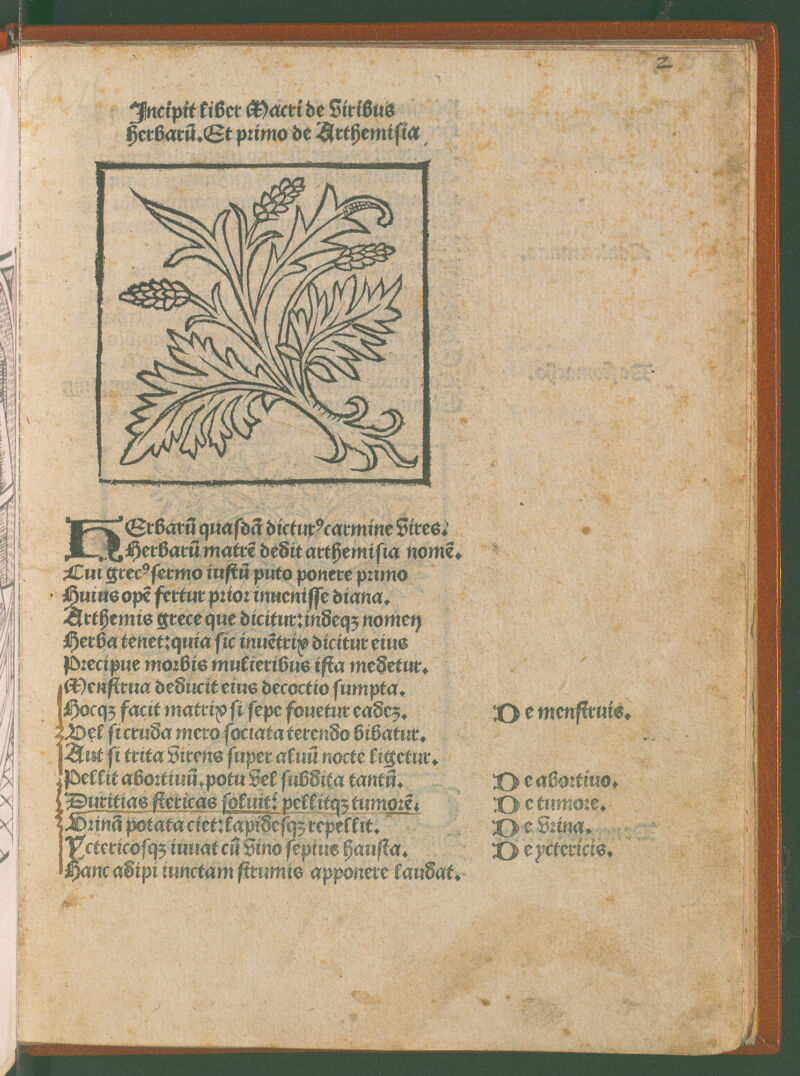 2
Incipit liber Macri de Viribus
herbarū. Et primo de Arthemisia
HErbarū quasdā dicturꝰ carmine Vires.
Herbarū matrē dedit arthemisia nomē.
Cui grecꝰ sermo iustū puto ponere primo
Huius opē fertur prior inuenisse diana.
Arthemis grece que dicitur: indeqʒ nomen
Herba tenet: quia sic inuētrix dicitur eius
Precipue morbis mulieribus ista medetur.
Menstrua deducit eius decoctio sumpta.
Hocqʒ facit matrix si sepe fouetur eadeʒ. De menstruis.
Vel si cruda mero sociata terendo bibatur.
Aut si trita Virens super aluū nocte ligetur.
Pellit abortiuū. potu Vel subdita tantū. De abortiuo.
Duritias stericas soluit: pellitqʒ tumorē. De tumore.
Vrinā potata ciet: lapidesqʒ repellit. De Vrina.
Yctericosqʒ iuuat cū Vino sepius hausta. De yctericis.
Hanc adipi iunctam strumis apponere laudat.